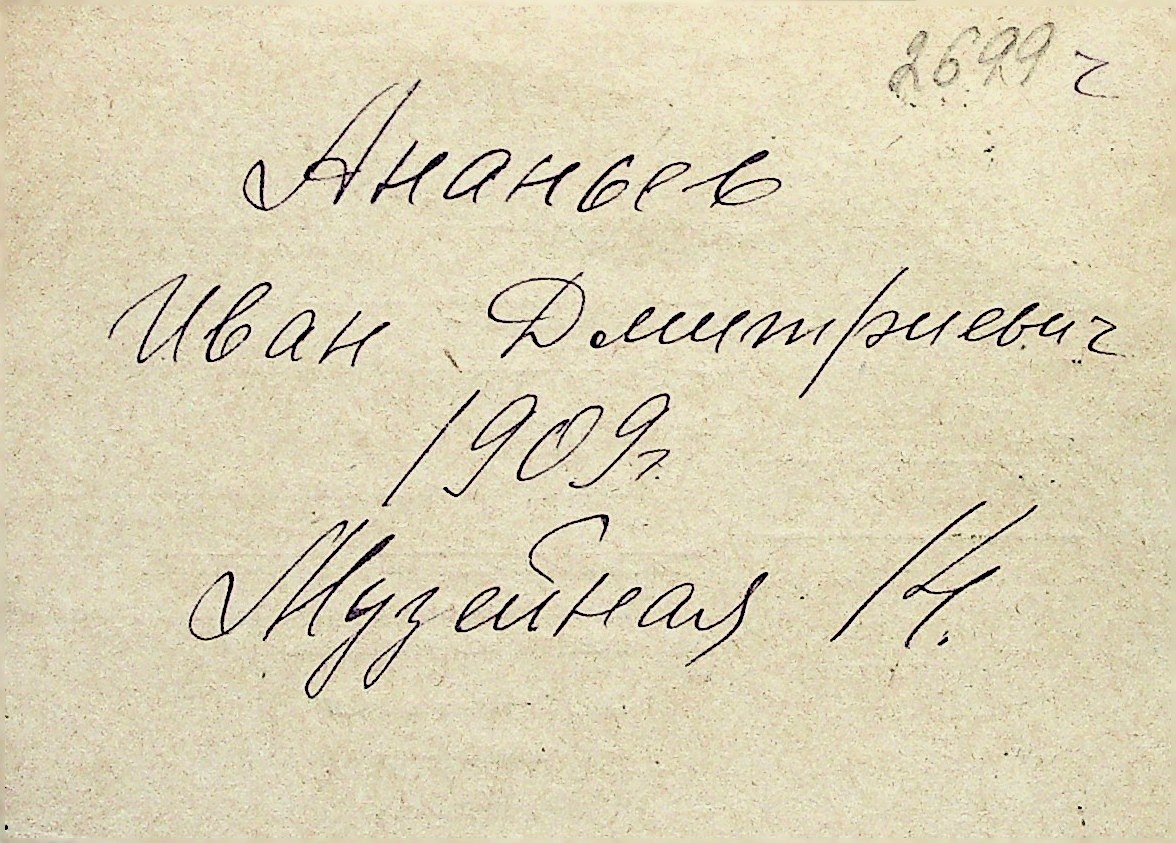 2699 ч
Ананьев
Иван Дмитриевич
1909г
Музейная 14.